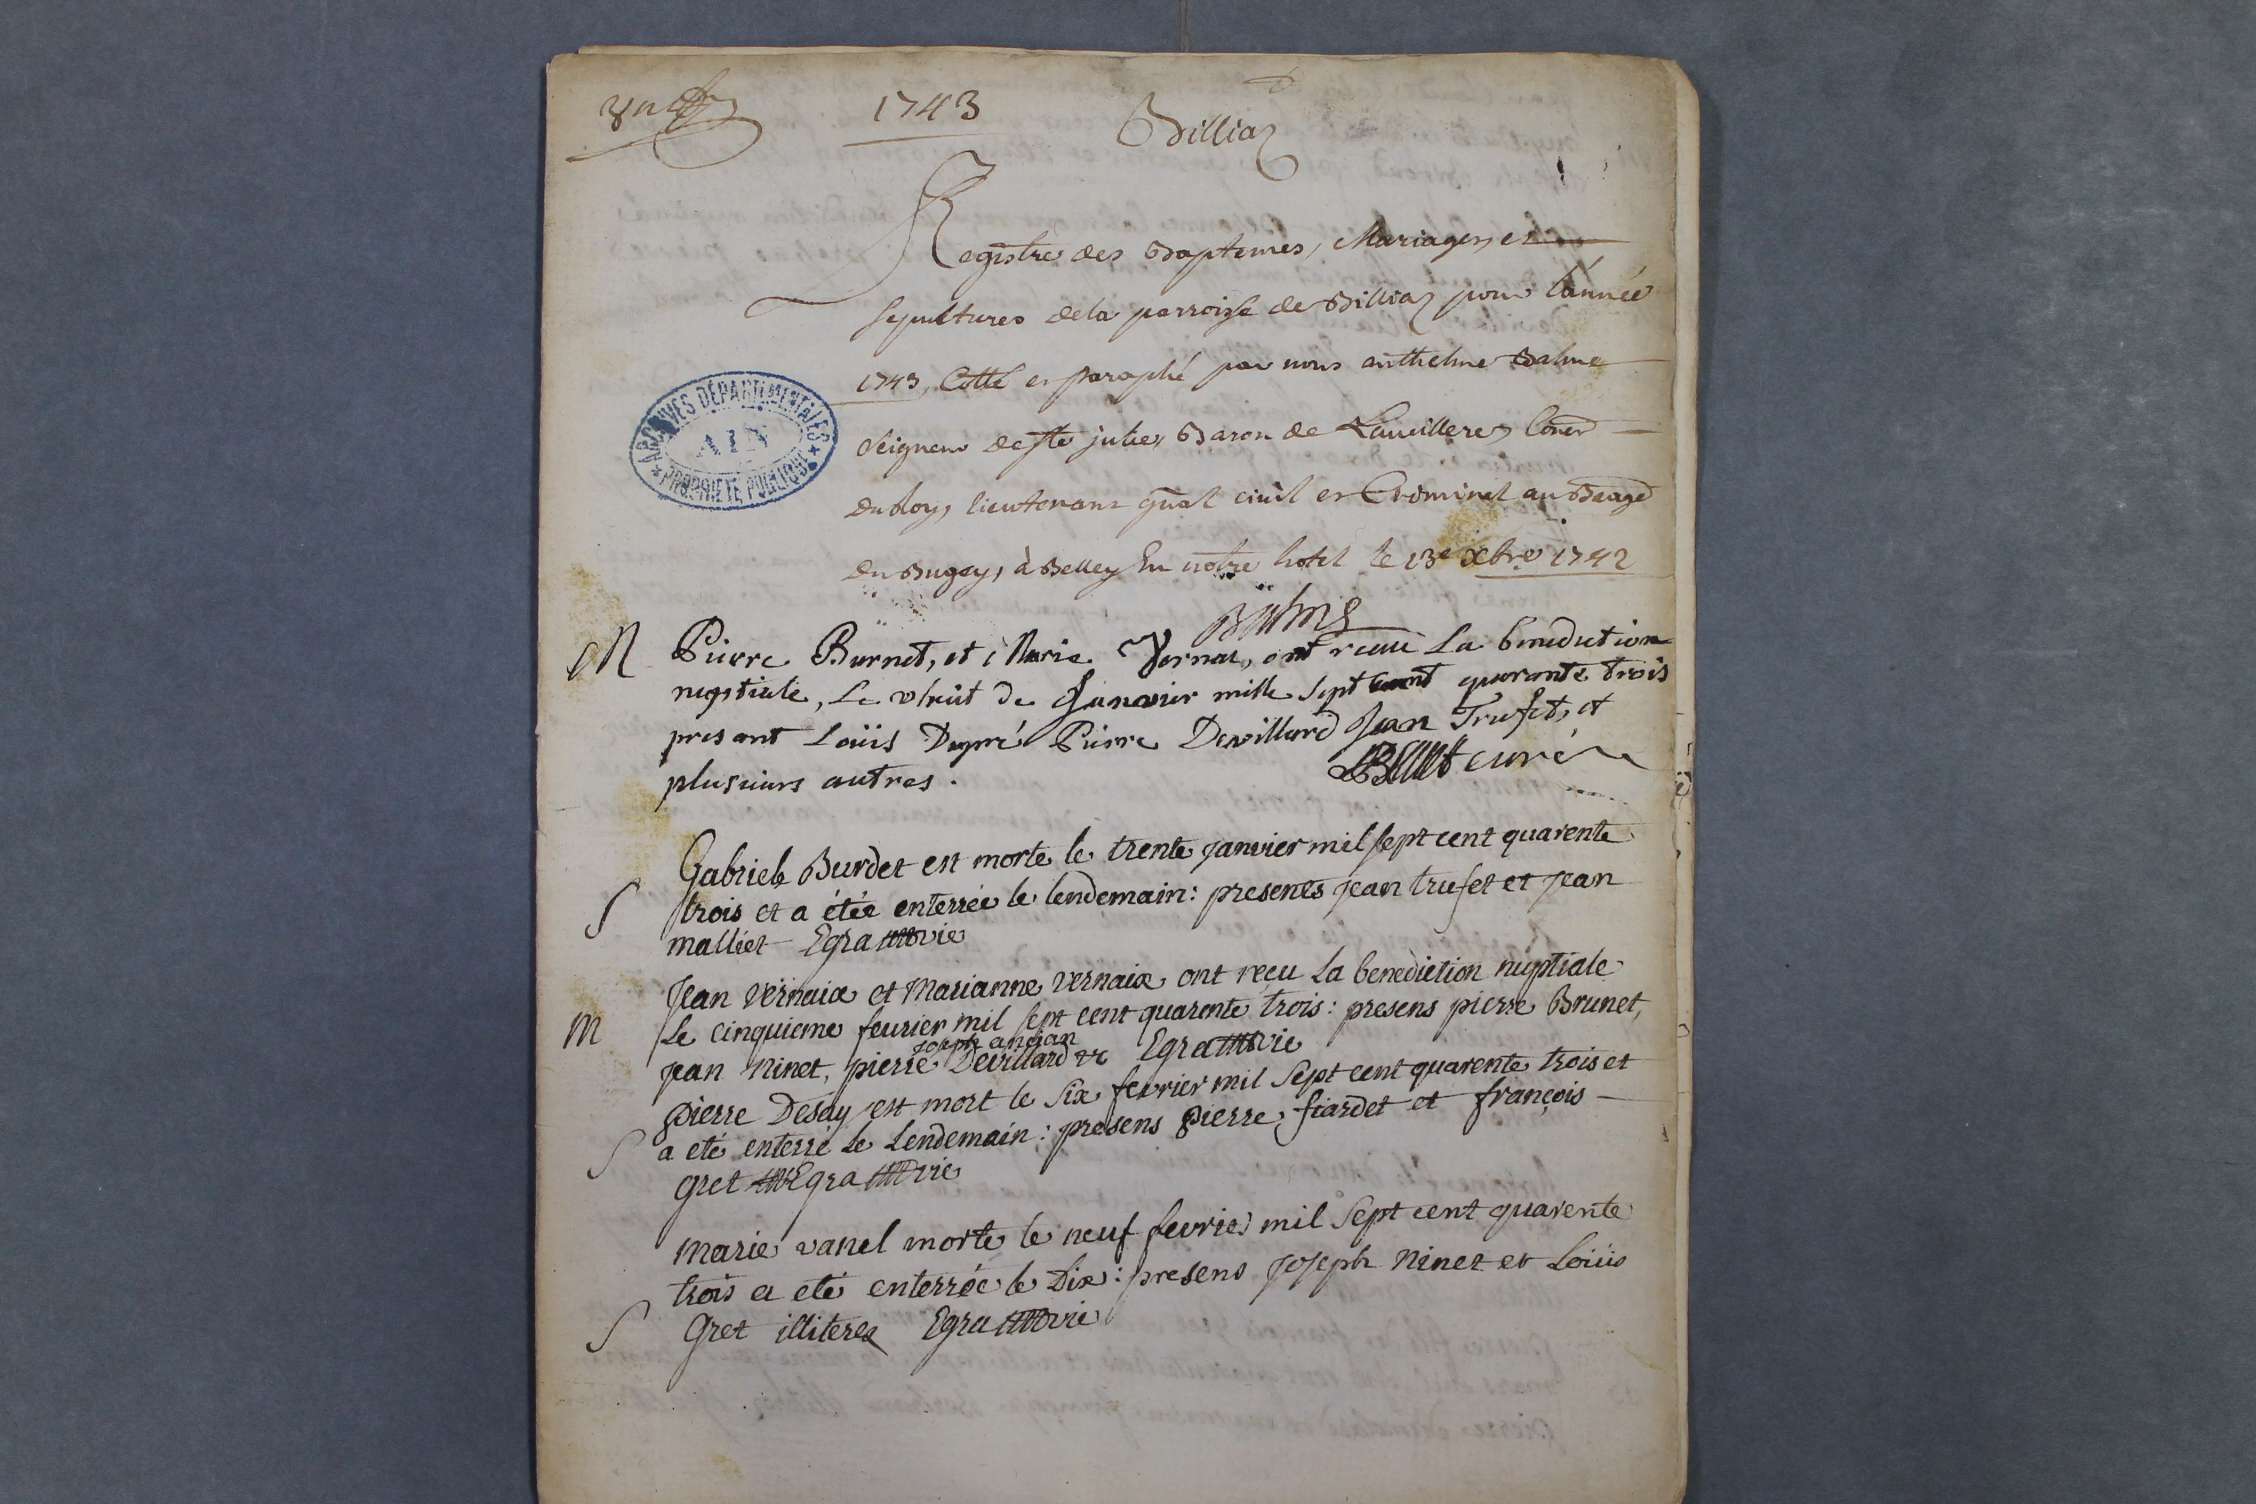 1743
Billiaz
Registre des Baptemes, Mariages, et
sepultures de la parroisse de Billiaz pour l'année
1743, Cotté et paraphé par nous anthelme Balme
seigneur de ste julie, Baron de Lauillere, Coner
du Roy, lieutenant gnal civil et Criminel au Beage
du Bugey, à Belley En notre hotel le 13e xbre 1742
Balme
ARCHIVES DÉPARTEMENTALES
AIN
PROPRIÉTÉ PUBLIQUE
M Pierre Burnet, et Marie Vernai, ont receu La benediction
nuptiale, Le vhuit de Janvier mille sept cent quarante trois
present Loüis Dupré Pierre Devillard Jean Trufet, et
plusieurs autres. curé
Gabriele Burdet est morte le trente janvier mil sept cent quarente
S trois et a étée enterrée le lendemain: presents jean trufet et jean
malliet Egra vie
Jean vernaix et Marianne vernaix ont reçu la benediction nuptiale
M Le cinquieme feurier mil sept cent quarente trois: presens pierre Brunet,
joseph andjan
jean Ninet, pierre Devillard &c Egra vie
pierre Desay est mort le six fevrier mil sept cent quarente trois et
S a eté enterré le Lendemain: presens pierre fiardet et françois
gret Egra vie
marie vanel morte le neuf fevrier mil sept cent quarente
trois a eté enterrée le Dix: presens joseph Ninet et Loüis
S Gret illiteres Egra vie